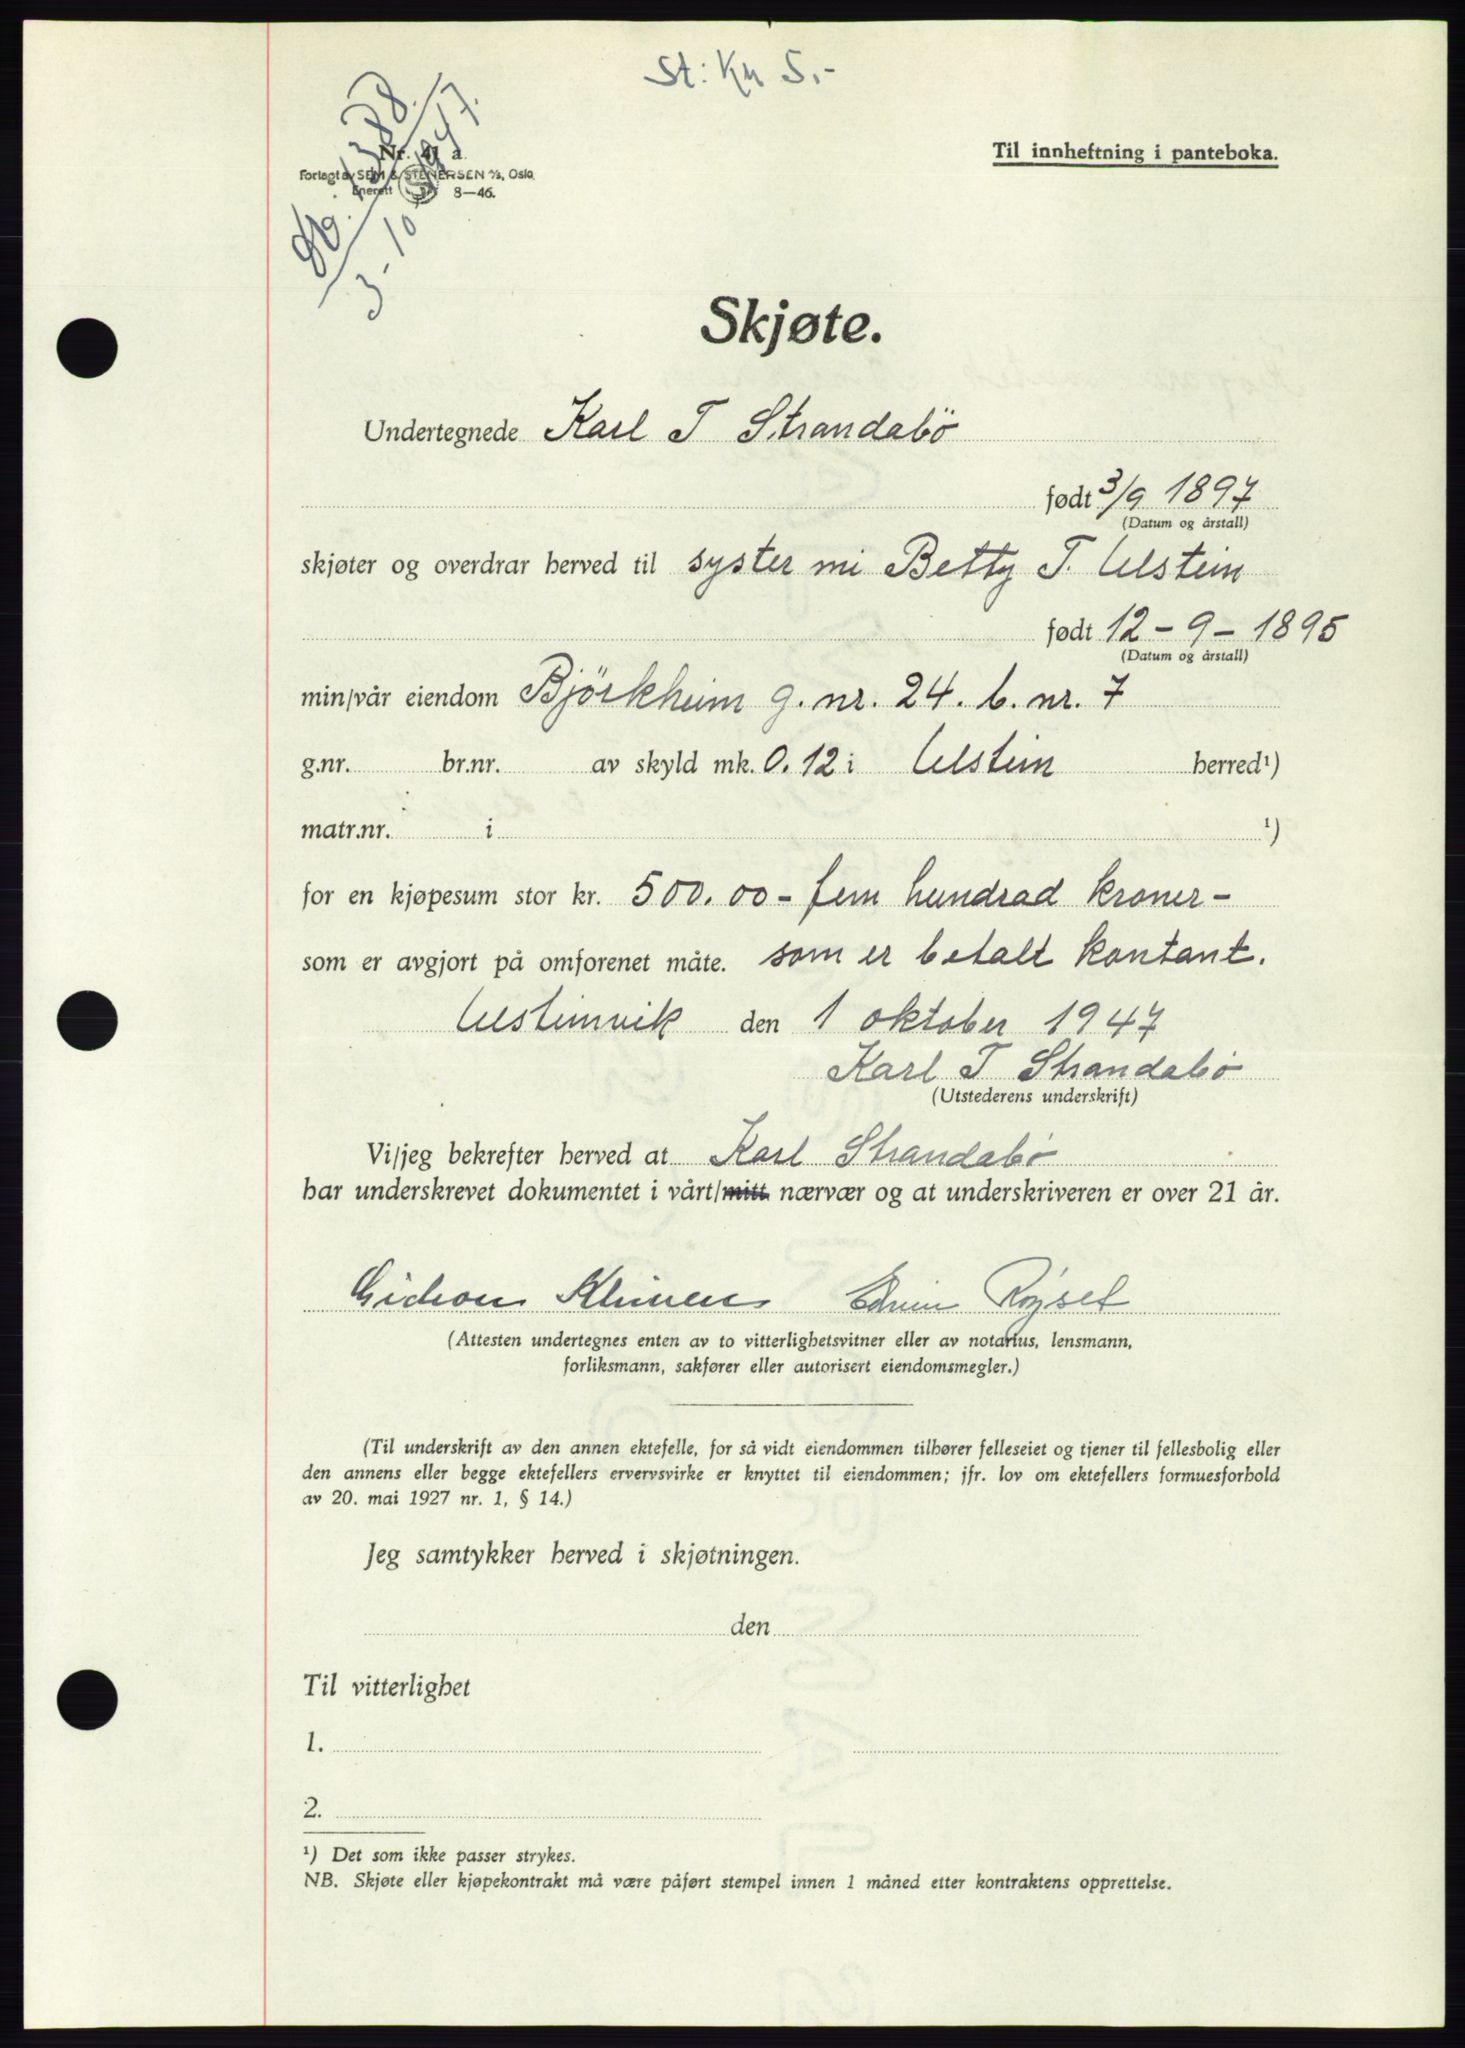 St: Kr 5,-
Dg. 1388.
3-10 1947.
Nr. 41 a.
Forlagt av SEM & STENERSEN A/S, Oslo
Enerett 8—46.
Til innheftning i panteboka.
Skjøte.
Undertegnede Karl T Strandabö
født 3/9 1897
(Datum og årstall)
skjøter og overdrar herved til syster mi Betty T. Ulstein
født 12-9-1895
(Datum og årstall)
min/vår eiendom Björkheim g. nr. 24. b. nr. 7
g.nr. br.nr. av skyld mk. 0.12 i Ulstein herred¹)
matr.nr. i ¹)
for en kjøpesum stor kr. 500.00 - fem hundrad kroner -
som er avgjort på omforenet måte. som er betalt kontant.
Ulsteinvik den 1 oktober 1947
Karl T Strandabö
(Utstederens underskrift)
Vi/jeg bekrefter herved at Karl Strandabö
har underskrevet dokumentet i vårt/mitt nærvær og at underskriveren er over 21 år.
Gideon Edvin Røyset
(Attesten undertegnes enten av to vitterlighetsvitner eller av notarius, lensmann,
forliksmann, sakfører eller autorisert eiendomsmegler.)
(Til underskrift av den annen ektefelle, for så vidt eiendommen tilhører felleseiet og tjener til fellesbolig eller
den annens eller begge ektefellers ervervsvirke er knyttet til eiendommen; jfr. lov om ektefellers formuesforhold
av 20. mai 1927 nr. 1, § 14.)
Jeg samtykker herved i skjøtningen.
den
Til vitterlighet
1.
2.
¹) Det som ikke passer strykes.
NB. Skjøte eller kjøpekontrakt må være påført stempel innen 1 måned etter kontraktens opprettelse.